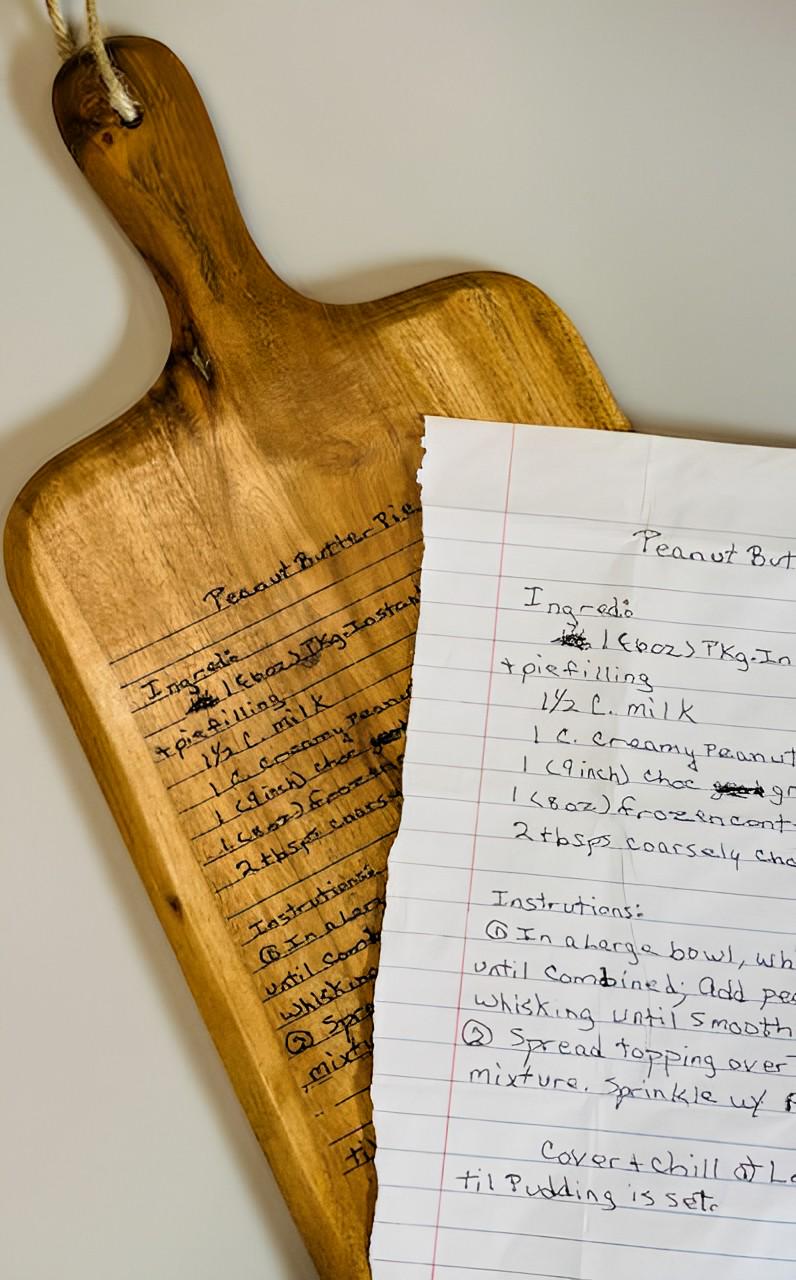 Peanut Butter Pie
Ingreds
1 (6oz) Pkg. Instan
+ piefilling
1½ C. milk
1 C. creamy Peanu
1 (9inch) choc
1 (8oz) frozen
2 tbsps coars
Instrutions:
① In a Lar
until Com
whisking
② Spre
mixtu
til
Peanut But
Ingreds
1 (6oz) PKg. In
+ piefilling
1½ C. milk
1 C. creamy Peanut
1 (9inch) choc gr
1 (8oz) frozen cont
2 tbsps coarsely cho
Instrutions:
① In a Large bowl, wh
until combined; Add pea
whisking until smooth
② Spread topping over
mixture. Sprinkle w/
Cover + chill at Le
til Pudding is set.